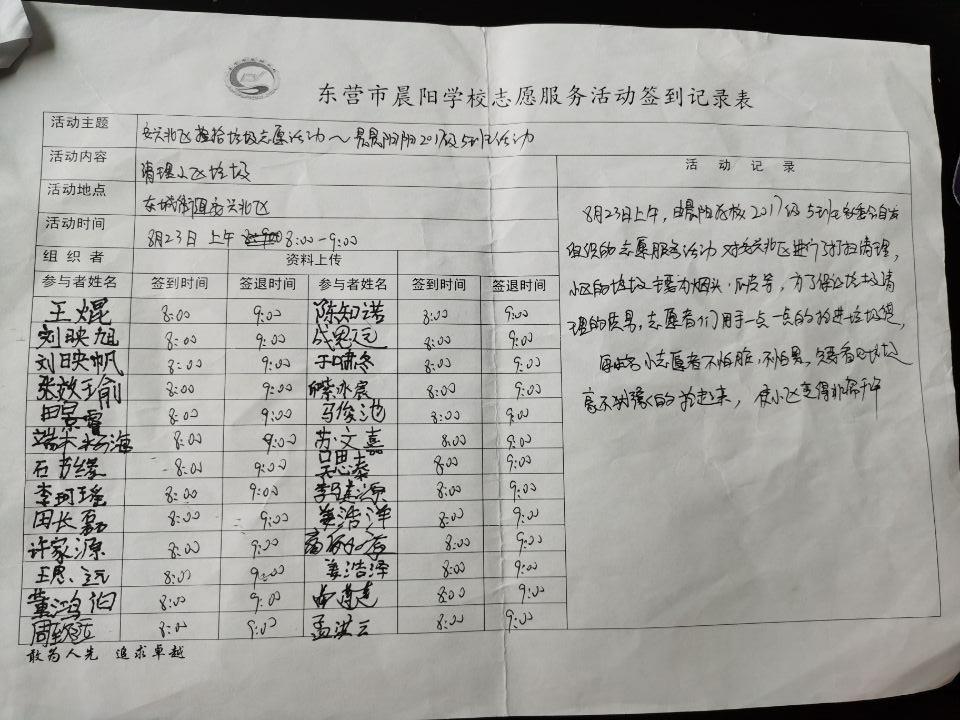 东营市晨阳学校志愿服务活动签到记录表
活动主题 安兴北区捡拾垃圾志愿活动~晨晨阳阳2017级5班活动
活动内容 清理小区垃圾
活动地点 东城街道安兴北区
活动时间 8月23日 上午 8:00-9:00
组织者 资料上传
参与者姓名 签到时间 签退时间 参与者姓名 签到时间 签退时间
王焜 8:00 9:00 陈知诺 8:00 9:00
刘映旭 8:00 9:00 8:00 9:00
刘映帆 8:00 9:00 于啸冬 8:00 9:00
张效瑜 8:00 9:00 8:00 9:00
田景睿 8:00 9:00 马俊池 8:00 9:00
端木 海 8:00 9:00 苏文嘉 8:00 9:00
石 缘 8:00 9:00 吴思泰 8:00 9:00
李珂瑶 8:00 9:00 李建源 8:00 9:00
田长磊 8:00 9:00 姜浩洋 8:00 9:00
许家源 8:00 9:00 8:00 9:00
王思 8:00 9:00 姜浩泽 8:00 9:00
董鸿伯 8:00 9:00 8:00 9:00
周 8:00 9:00 孟洪 8:00 9:00
敢为人先 追求卓越
活动记录
8月23日上午,由晨阳学校2017级5班家委会自发
组织的志愿服务活动对安兴北区进行了打扫清理,
小区的垃圾主要为烟头、瓜皮等,为了保证垃圾清
理的效果,志愿者们用手一点一点的捡进垃圾袋,
小志愿者不怕脏,不怕累,
毫不犹豫的捡起来,使小区变得非常干净